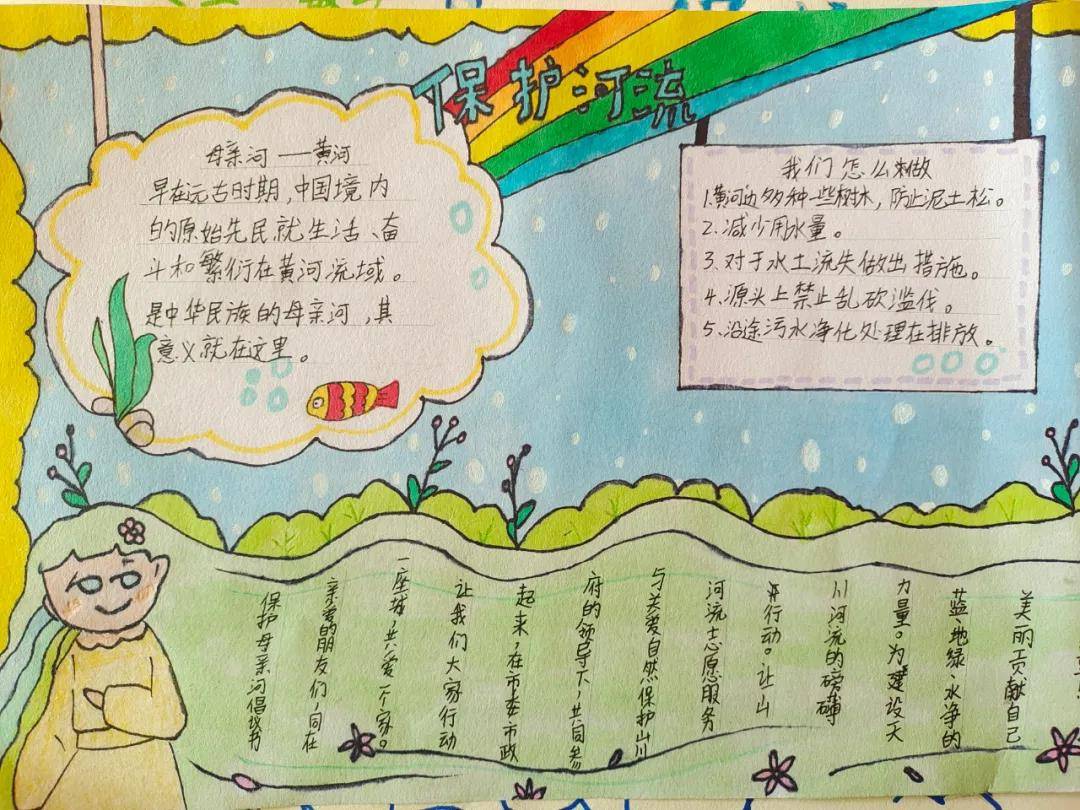 保护河流
母亲河——黄河
早在远古时期,中国境内
的原始先民就生活、奋
斗和繁衍在黄河流域。
是中华民族的母亲河,其
意义就在这里。
我们怎么做
1.黄河边多种一些树木,防止泥土松。
2.减少用水量。
3.对于水土流失做出措施。
4.源头上禁止乱砍滥伐。
5.沿途污水净化处理在排放。
保护母亲河倡议书
亲爱的朋友们,同在
一座城,共爱一个家。
让我们大家行动
起来,在市委市政
府的领导下,共同参
与关爱自然保护山川
河流志愿服务
行动。让山
川河流的磅礴
力量。为建设天
蓝、地绿、水净的
美丽贡献自己